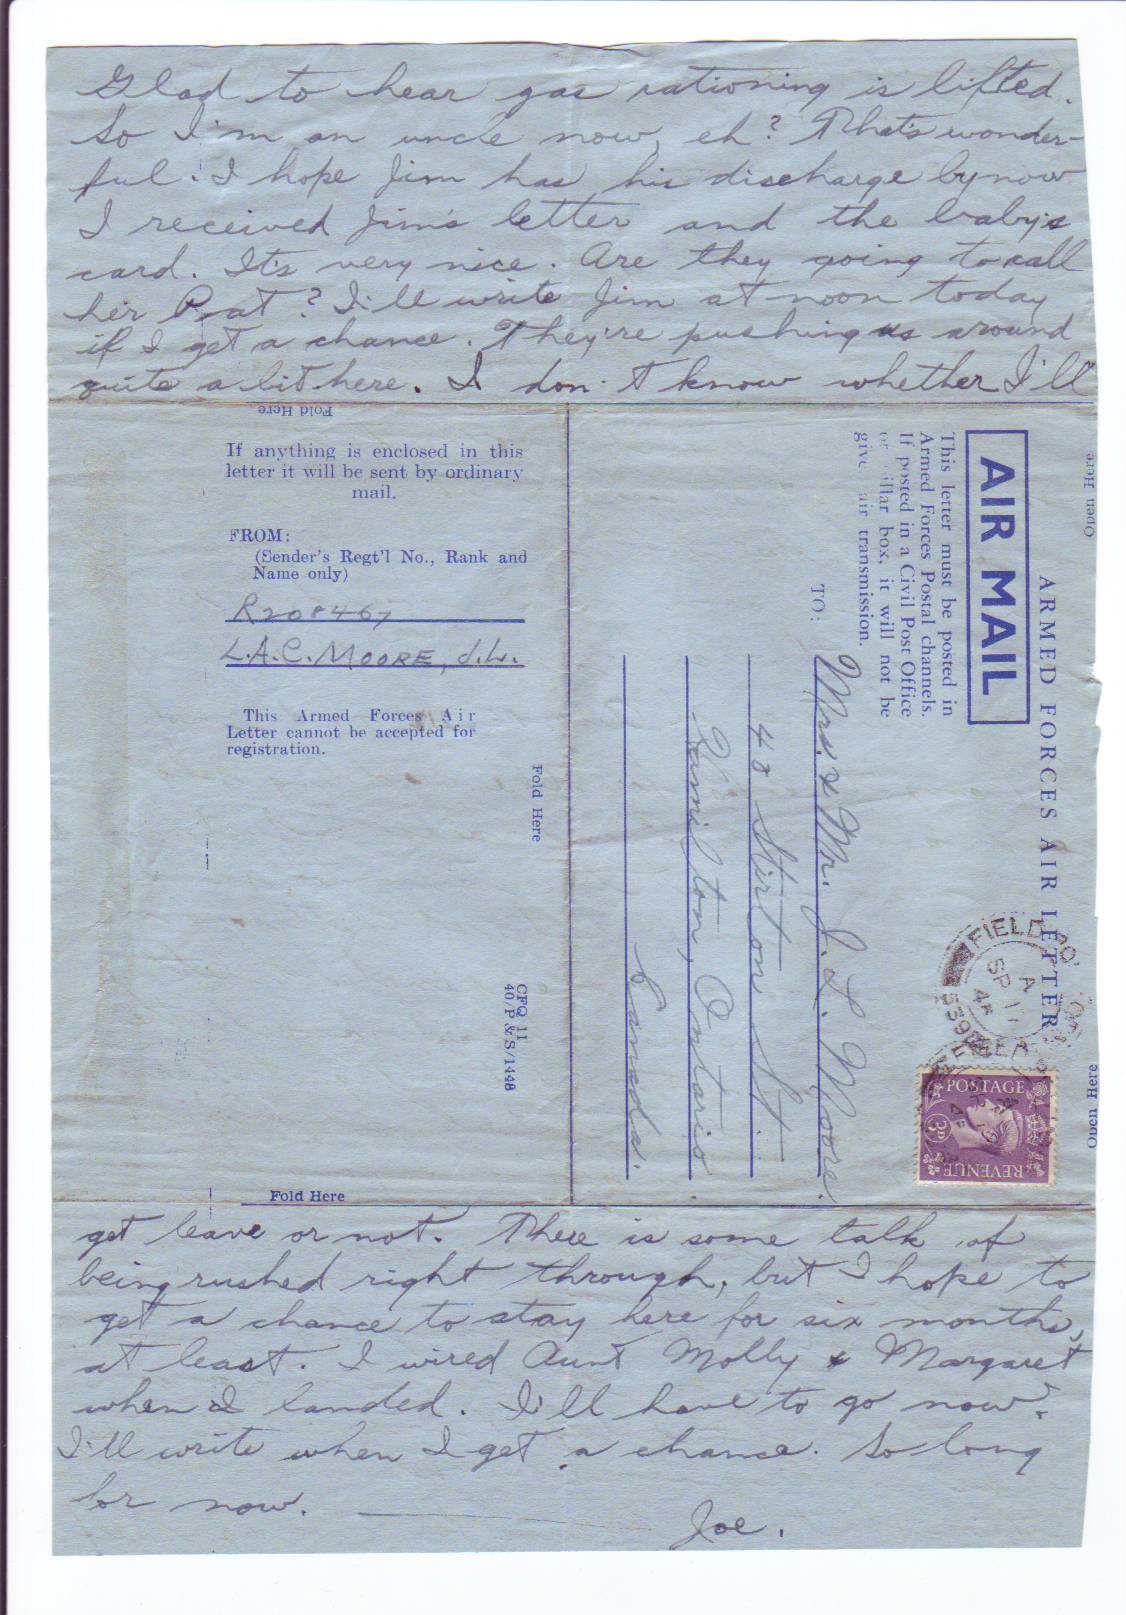 Glad to hear gas rationing is lifted.
So I'm an uncle now, eh? That's wonder-
ful. I hope Jim has his discharge by now
I received Jim's letter and the baby's
card. It's very nice. Are they going to call
her Pat? I'll write Jim at noon today
if I get a chance. They're pushing us around
quite a bit here. I don't know whether I'll
Fold Here
If anything is enclosed in this
letter it will be sent by ordinary
mail.
FROM:
(Sender's Regt'l No., Rank and
Name only)
R208467
L.A.C. MOORE, J.L.
This Armed Forces Air
Letter cannot be accepted for
registration.
Fold Here
CFQ 11
40/P&S/1448
Fold Here
Open Here
ARMED FORCES AIR LETTER
AIR MAIL
This letter must be posted in
Armed Forces Postal channels.
If posted in a Civil Post Office
or pillar box, it will not be
give air transmission.
TO:
Mrs. & Mr. J. L. Moore.
48 Stirton St.
Hamilton, Ontario
Canada.
FIELD PO
A
SP 11
539
POSTAGE
3D
REVENUE
Open Here
get leave or not. There is some talk of
being rushed right through, but I hope to
get a chance to stay here for six months,
at least. I wired Aunt Molly & Margaret
when I landed. I'll have to go now.
I'll write when I get a chance. So long
for now.
Joe.